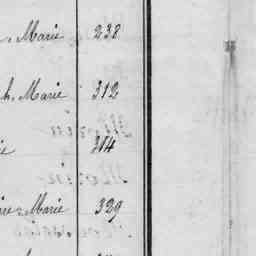 Marie 238
h. Marie 312
ie 314
rie-Marie 329